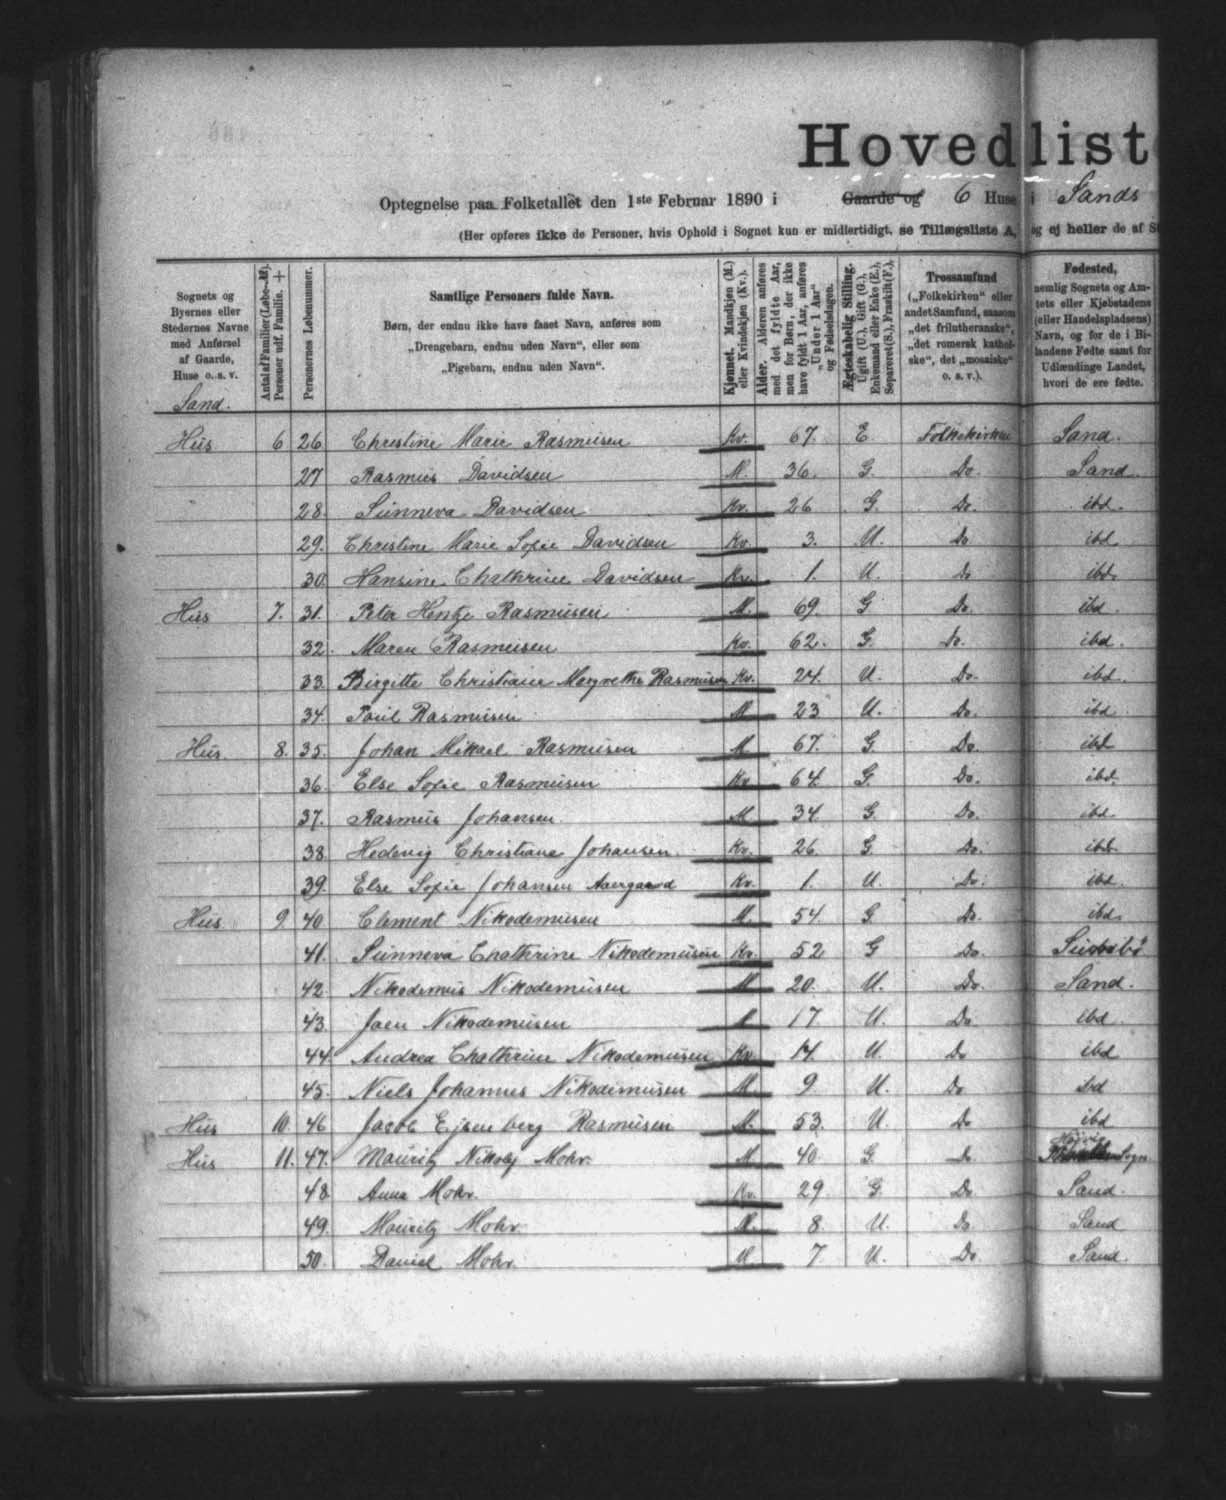 Hovedlist
Optegnelse paa Folketallet den 1ste Februar 1890 i Gaarde og 6 Huse i Sands
(Her opføres ikke de Personer, hvis Ophold i Sognet kun er midlertidigt, se Tillægsliste A, og ej heller de af
Sognets og Byernes eller Stedernes Navne med Anførsel af Gaarde, Huse o. s. v.
Antal af Familier (Løbe-№). Personer udf. Familie. +
Personernes Løbenummer.
Samtlige Personers fulde Navn.
Børn, der endnu ikke have faaet Navn, anføres som
„Drengebarn, endnu uden Navn", eller som
„Pigebarn, endnu uden Navn".
Kjønnet. Mandkjøn (M.) eller Kvindekjøn (Kv.).
Alder. Alderen anføres med det fyldte Aar, men for Børn, der ikke have fyldt 1 Aar, anføres „Under 1 Aar" og Fødselsdagen.
Ægteskabelig Stilling. Ugift (U.), Gift (G.), Enkemand eller Enke (E.), Separeret (S.), Fraskilt (F.).
Trossamfund („Folkekirken" eller andet Samfund, saasom „det frilutheranske", „det romersk katholske", det „mosaiske" o. s. v.).
Fødested, nemlig Sognets og Amtets eller Kjøbstadens (eller Handelspladsens) Navn, og for de i Bilandene Fødte samt for Udlændinge Landet, hvori de ere fødte.
Sand.
Hus 6 26 Christine Marie Rasmusen Kv. 67. E. Folkekirken Sand.
27 Rasmus Davidsen M. 36. G. Do. Sand.
28. Sunneva Davidsen Kv. 26 G. Do. ibd.
29. Christine Marie Sofie Davidsen Kv. 3. U. Do ibd.
30. Hansine Chathrine Davidsen Kv. 1. U. Do ibd.
Hus 7. 31. Peter Hentze Rasmusen M. 69. G Do. ibd.
32. Maren Rasmusen Kv. 62. G. Do. ibd.
33. Birgitte Christiane Margrethe Rasmusen Kv. 24. U. Do. ibd.
34. Poul Rasmusen M 23 U. Do. ibd
Hus. 8. 35. Johan Mikael Rasmusen M. 67. G. Do. ibd
36. Else Sofie Rasmusen Kv. 64. G. Do. ibd.
37. Rasmus Johansen. M 34 G. Do. ibd
38 Hedevig Christiane Johansen. Kv. 26. G. Do. ibd.
39. Else Sofie Johansen Aargaard Kv. 1. U. Do. ibd.
Hus. 9. 40 Clement Nikodemusen M. 54. G Do. ibd.
41. Sunneva Chathrine Nikodemusen Kv. 52 G Do.
42. Nikodemus Nikodemusen M 20. U. Do. Sand.
43. Joen Nikodemusen 17 U. Do ibd
44. Andrea Chathrine Nikodemusen Kv. 14. U. Do ibd
45. Niels Johannes Nikodemusen M. 9 U. Do ibd
Hus 10. 46 Jacob Ejsenberg Rasmusen M. 53. U. Do ibd
Hus 11. 47. Mauritz Nikolaj Mohr. M. 40. G. Do Sogn
48. Anna Mohr. Kv. 29 G. Do Sand.
49. Mauritz Mohr M. 8. U. Do Sand
50. Daniel Mohr. M. 7 U. Do. Sand.